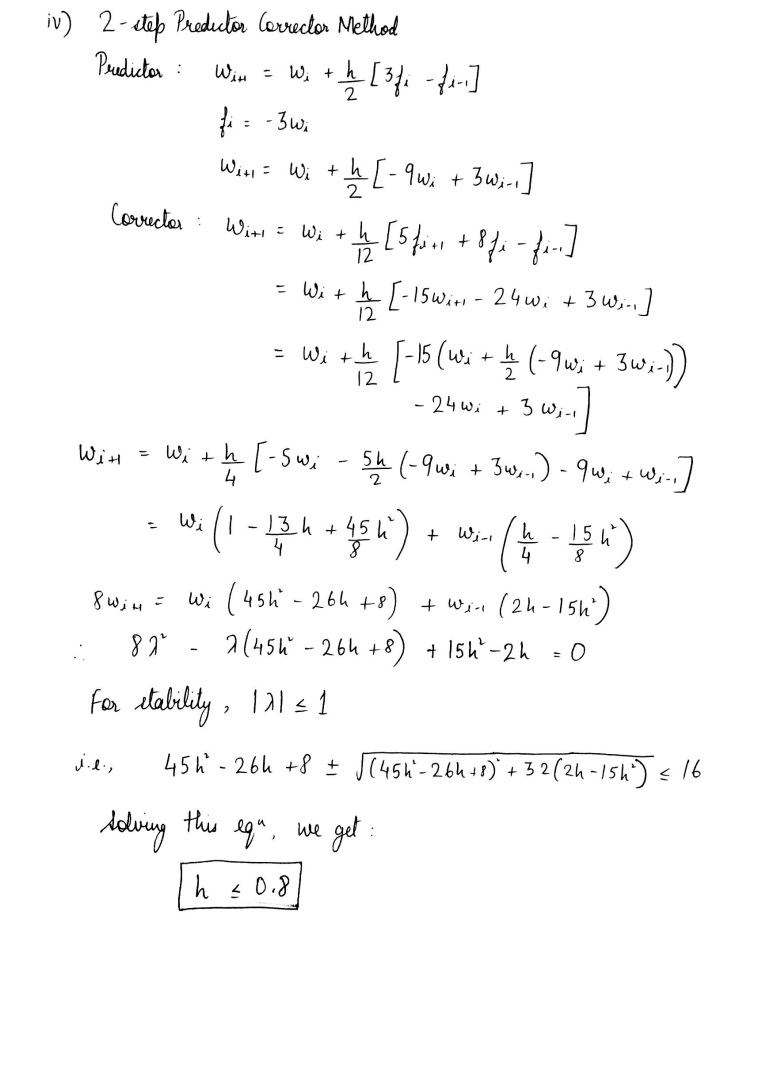 iv) 2-step Predictor Corrector Method
Predictor : w_{i+1} = w_i + h/2 [3f_i - f_{i-1}]
f_i = -3w_i
w_{i+1} = w_i + h/2 [-9w_i + 3w_{i-1}]
Corrector : w_{i+1} = w_i + h/12 [5f_{i+1} + 8f_i - f_{i-1}]
= w_i + h/12 [-15w_{i+1} - 24w_i + 3w_{i-1}]
= w_i + h/12 [-15(w_i + h/2 (-9w_i + 3w_{i-1}))
- 24w_i + 3w_{i-1}]
w_{i+1} = w_i + h/4 [-5w_i - 5h/2 (-9w_i + 3w_{i-1}) - 9w_i + w_{i-1}]
= w_i (1 - 13/4 h + 45/8 h²) + w_{i-1} (h/4 - 15/8 h²)
8w_{i+1} = w_i (45h² - 26h + 8) + w_{i-1} (2h - 15h²)
∴ 8λ² - λ(45h² - 26h + 8) + 15h² - 2h = 0
For stability, |λ| ≤ 1
i.e., 45h² - 26h + 8 ± √((45h² - 26h + 8)² + 32(2h - 15h²)) ≤ 16
Solving this eqⁿ, we get :
h ≤ 0.8